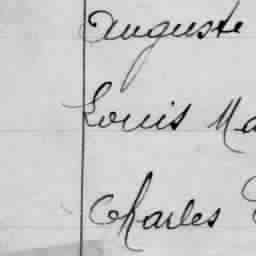 Auguste
Louis Ma
Charles